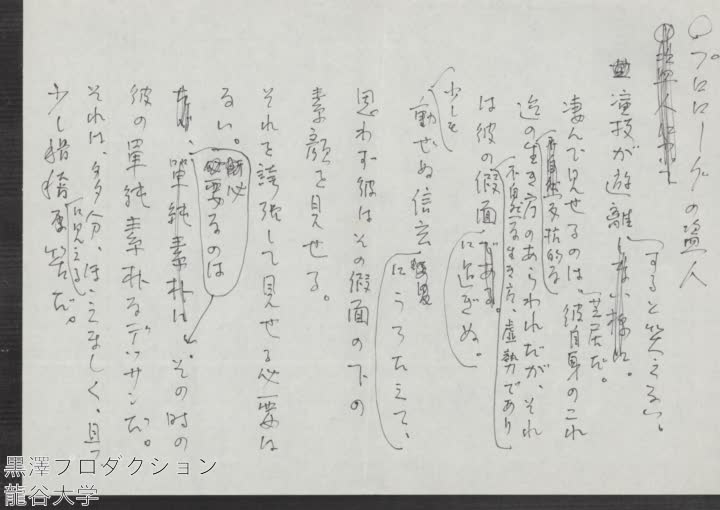 ○プロローグの盗人
演技が遊離しない様に。
すると笑えない。
凄んで見せるのは。芝居だ。彼自身のこれ
迄の生き方のあらわれだが、それ
不自然な生き方、虚勢であり
は彼の假面である。
に過ぎぬ。
少しも
動ぜぬ信玄にうろたえて、
思わず彼はその假面の下の
素顔を見せる。
それを誇張して見せる必要は
ない。
必要なのは
単純素朴に。その時の
彼の単純素朴なデッサンだ。
それは、多分、ほゝえましく、且つ
少し滑稽に見える筈だ。
黒澤プロダクション
龍谷大学